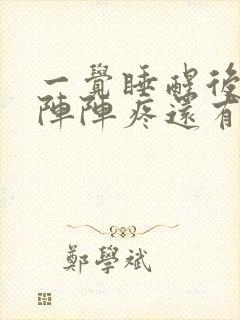 一覺睡醒後
陣陣疼還有
鄭學斌